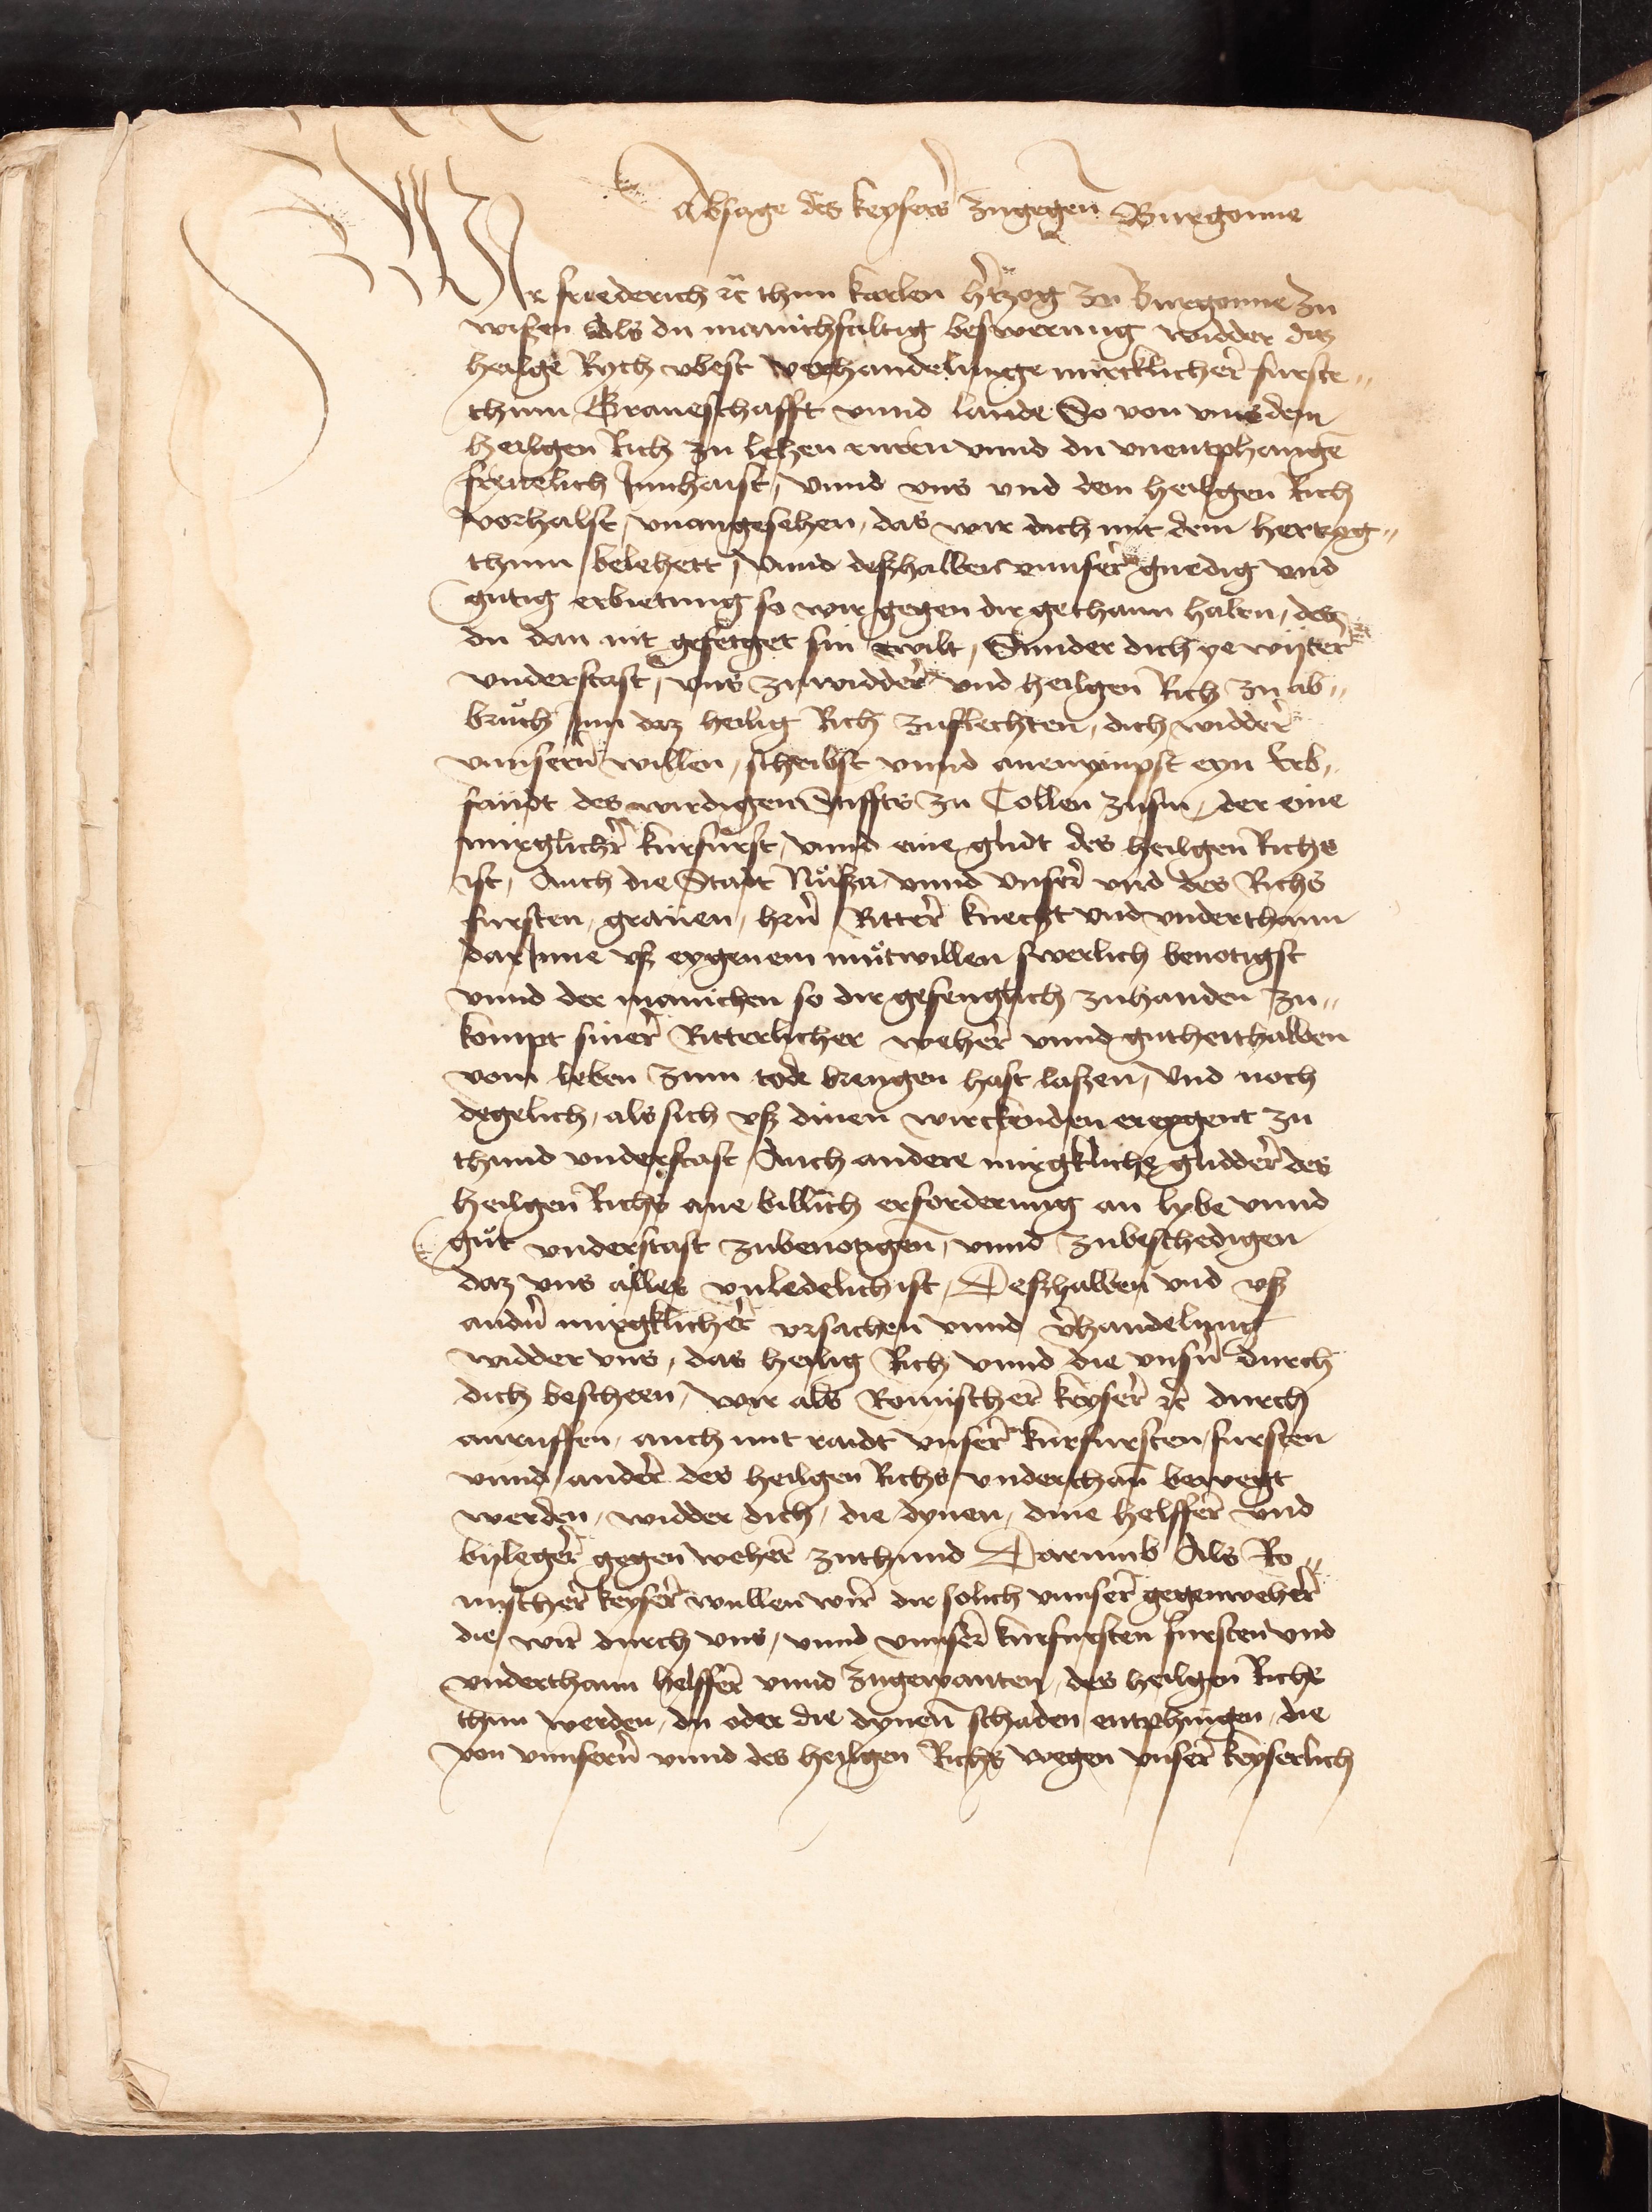 Absage des keysers zugegen Burgonne
WIr friederich etc thun karlen hertzog zu burgonne zu
wißen Als du manichfaltig beswerung widder daz
heilge Rych vbest verhandelunge mircklicher furste„
thum Graueschafft vnnd lande So von vns dem
heilgen Rich zu lehen ruren vnnd du vnentphange
freuelich Innhaist, vnnd vns vnd dem heilgen Rich
vorhalst, vnangesehen, das wir dich mit dem hertzog„
thum belehett, vnnd deßhalben vnnser gnedig vnd
gutig erbietung so wir gegen dir gethann haben, des
du dan nit gesetget sin wilt, Sunder dich ye wijter
vnderstast, vns zuwidder vnd heilgen Rich zu ab„
bruch Inn daz heilig Rich zuflechten, dich widder
vnnsern willen, schribst vnnd anenympst eyn Erb„
faudt des wirdigen Stiffts zu Collen zusin, der eine
mirglicher kurfurst, vnnd eine glidt des heilgen Richs
ist, Auch die Stadt Nußa, vnnd vnser vnd des Richs
fursten, grauen, hern Ritter knecht vnd vnderthann
dar Inne vß eygenem mutwillen swerlich benotigst
vnnd der manichen so dir gefenglich zuhanden zu„
kompt siner Ritterlicher weher vnnd gutheithalben
vom leben zum tode brengen hast laßen, Vnd noch
degelich, als sich vß dinen wirckenden ereygent zu
thund vnderstast, Auch andere mirgkliche glidder des
heilgen Richs ane billich erforderung an lybe vnnd
gut vnderstast zubenotigen, vnnd zubeschedigen
daz vns alles vnledelich ist, Deßhalben vnd vß
andern mirgklicher vrsachen vnnd verhandelung
widder vns, das heilig Rich vnnd die vnsern durch
dich bescheen, wir als Romischer keyser etc durch
anruffen, auch mit raidt vnser kurfursten, fursten
vnnd ander des heilgen Richs vnderthan bewegt
werden, widder dich, die dynen, dine helffer vnd
bijleger gegen weher zuthund Darumb Als Ro„
mischer keyser wullen wir dir solich vnnser gegenweher
die wir durch vns, vnnd vnnser kurfursten fursten vnd
vnderthann helffer vnnd zugewanten, des heilgen Richs
thun werden, du oder die dynen schaden entphingen, die
von vnnsern vnnd des heilgen Richs wegen vnser keyserlich